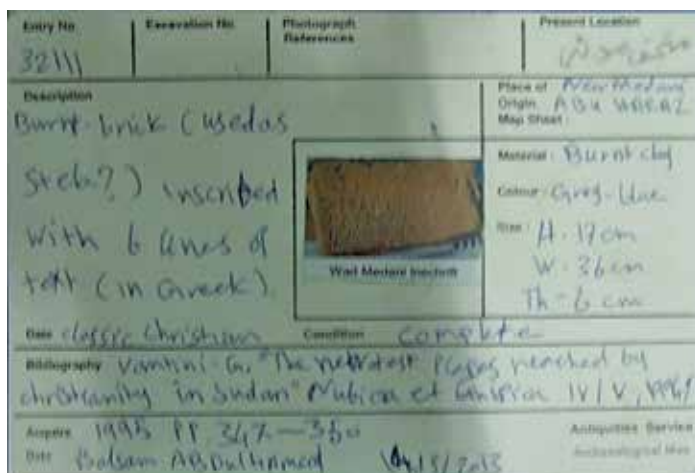 Entry No. Excavation No. Photograph References Present Location
32111
Description
Burnt-brick (used as
Stela?) inscribed
with 6 lines of
text (in Greek).
Wad Medani Inschrift
Place of Origin Near Medani
ABU HARAZ
Map Sheet
Material: Burnt clay
Colour: Grey-blue
Size: H. 17cm
W. 36cm
Th - 6 cm
Date classic Christian Condition complete
Bibliography Vantini G. "The remotest places reached by
christianity in Sudan" Nubica et IV/V,
Acquire 1995 PP 347-350 Antiquities Service
Date Balsam ABDulhameed Archaeological Map